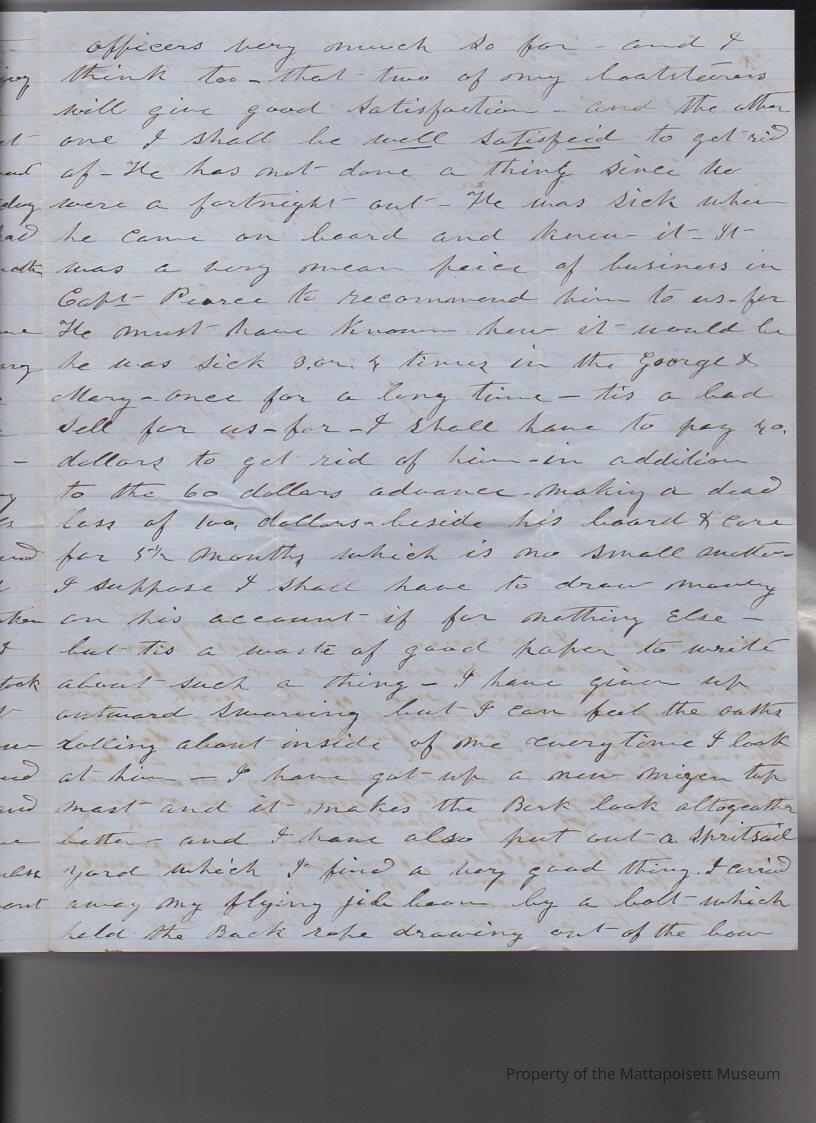 officers very much so far - and I
think too - that two of my boatsteerers
will give good satisfaction - and the other
one I shall be well satisfeid to get rid
of - He has not done a thing since we
were a fortnight out - He was sick when
he came on board and knew it - It
was a very mean peice of business in
Capt Pearce to recommend him to us - for
He must have known how it would be
he was sick 3, or 4 times in the George &
Mary - once for a long time - tis a bad
sell for us - for - I shall have to pay 40.
dollars to get rid of him - in addition
to the 60 dollars advance - making a dead
loss of 100, dollars - beside his board & care
for 5½ months, which is no small matter -
I suppose I shall have to draw money
on his account if for nothing else -
but tis a waste of good paper to write
about such a thing - I have given up
outward swearing but I can feel the oaths
rolling about inside of me everytime I look
at him - I have got up a new mizen top
mast and it makes the Bark look altogeather
better - and I have also put out a spritsail
yard which I find a very good thing. I carried
away my flying jib boom by a bolt which
held the Back rope drawing out of the bow
Property of the Mattapoisett Museum